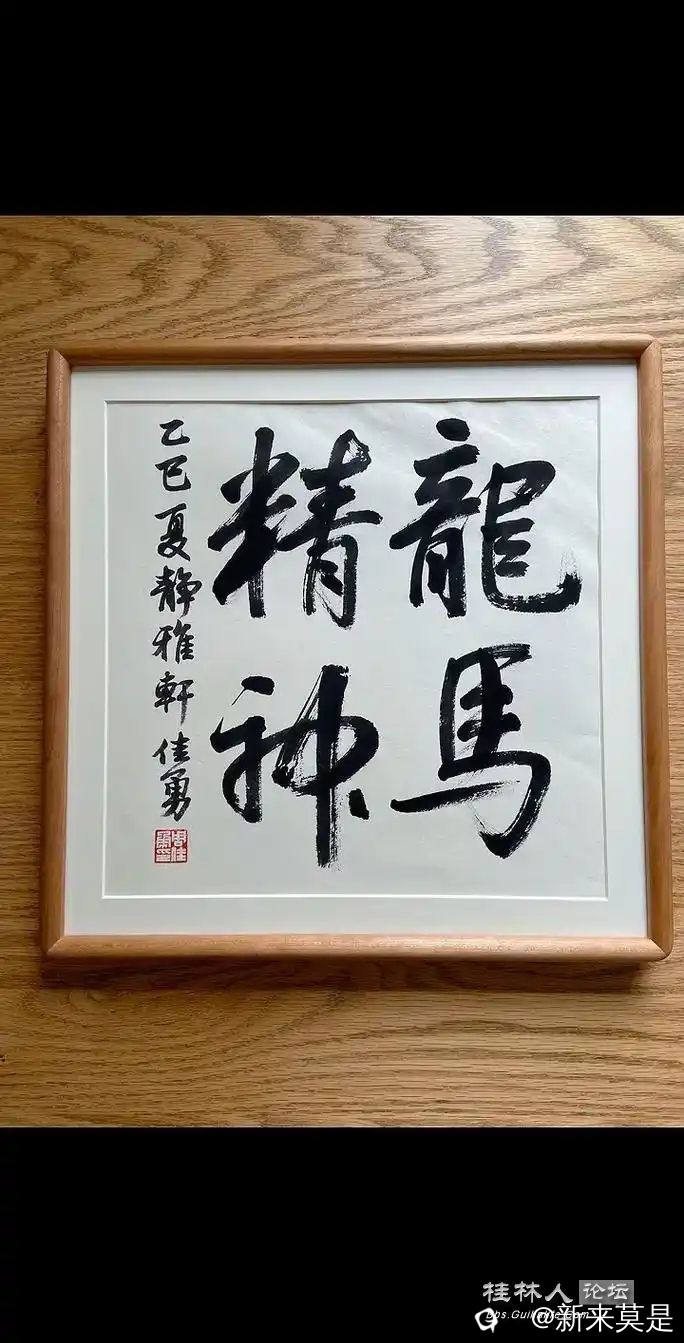 龍馬
精神
乙巳夏靜雅軒佳勇
桂林人论坛
bbs.Guilinlife.com
@新来莫是